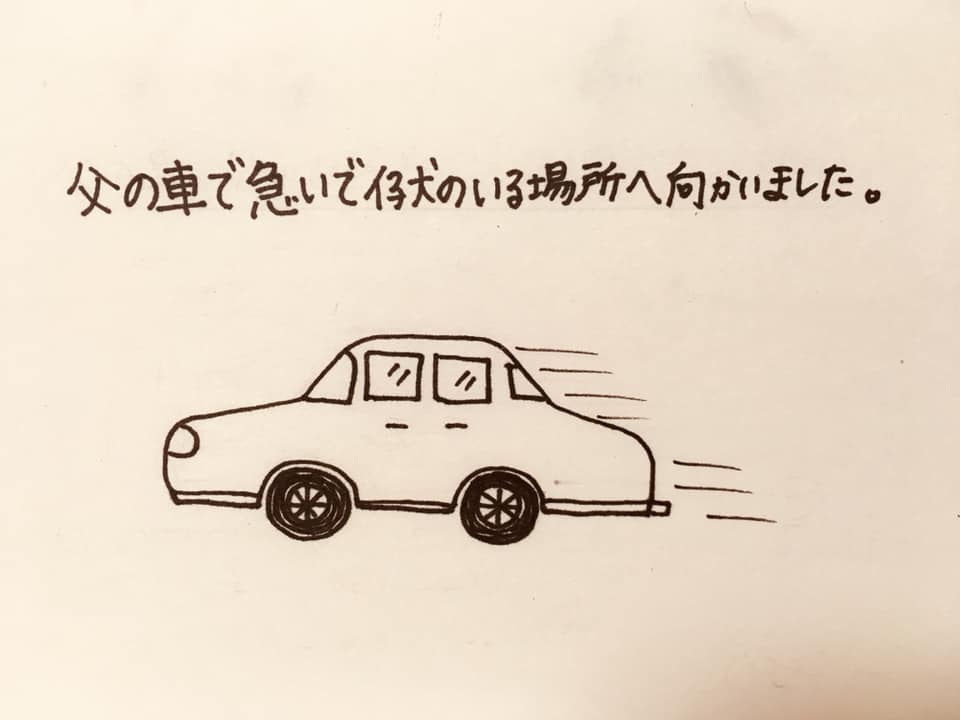 父の車で急いで仔犬のいる場所へ向かいました。